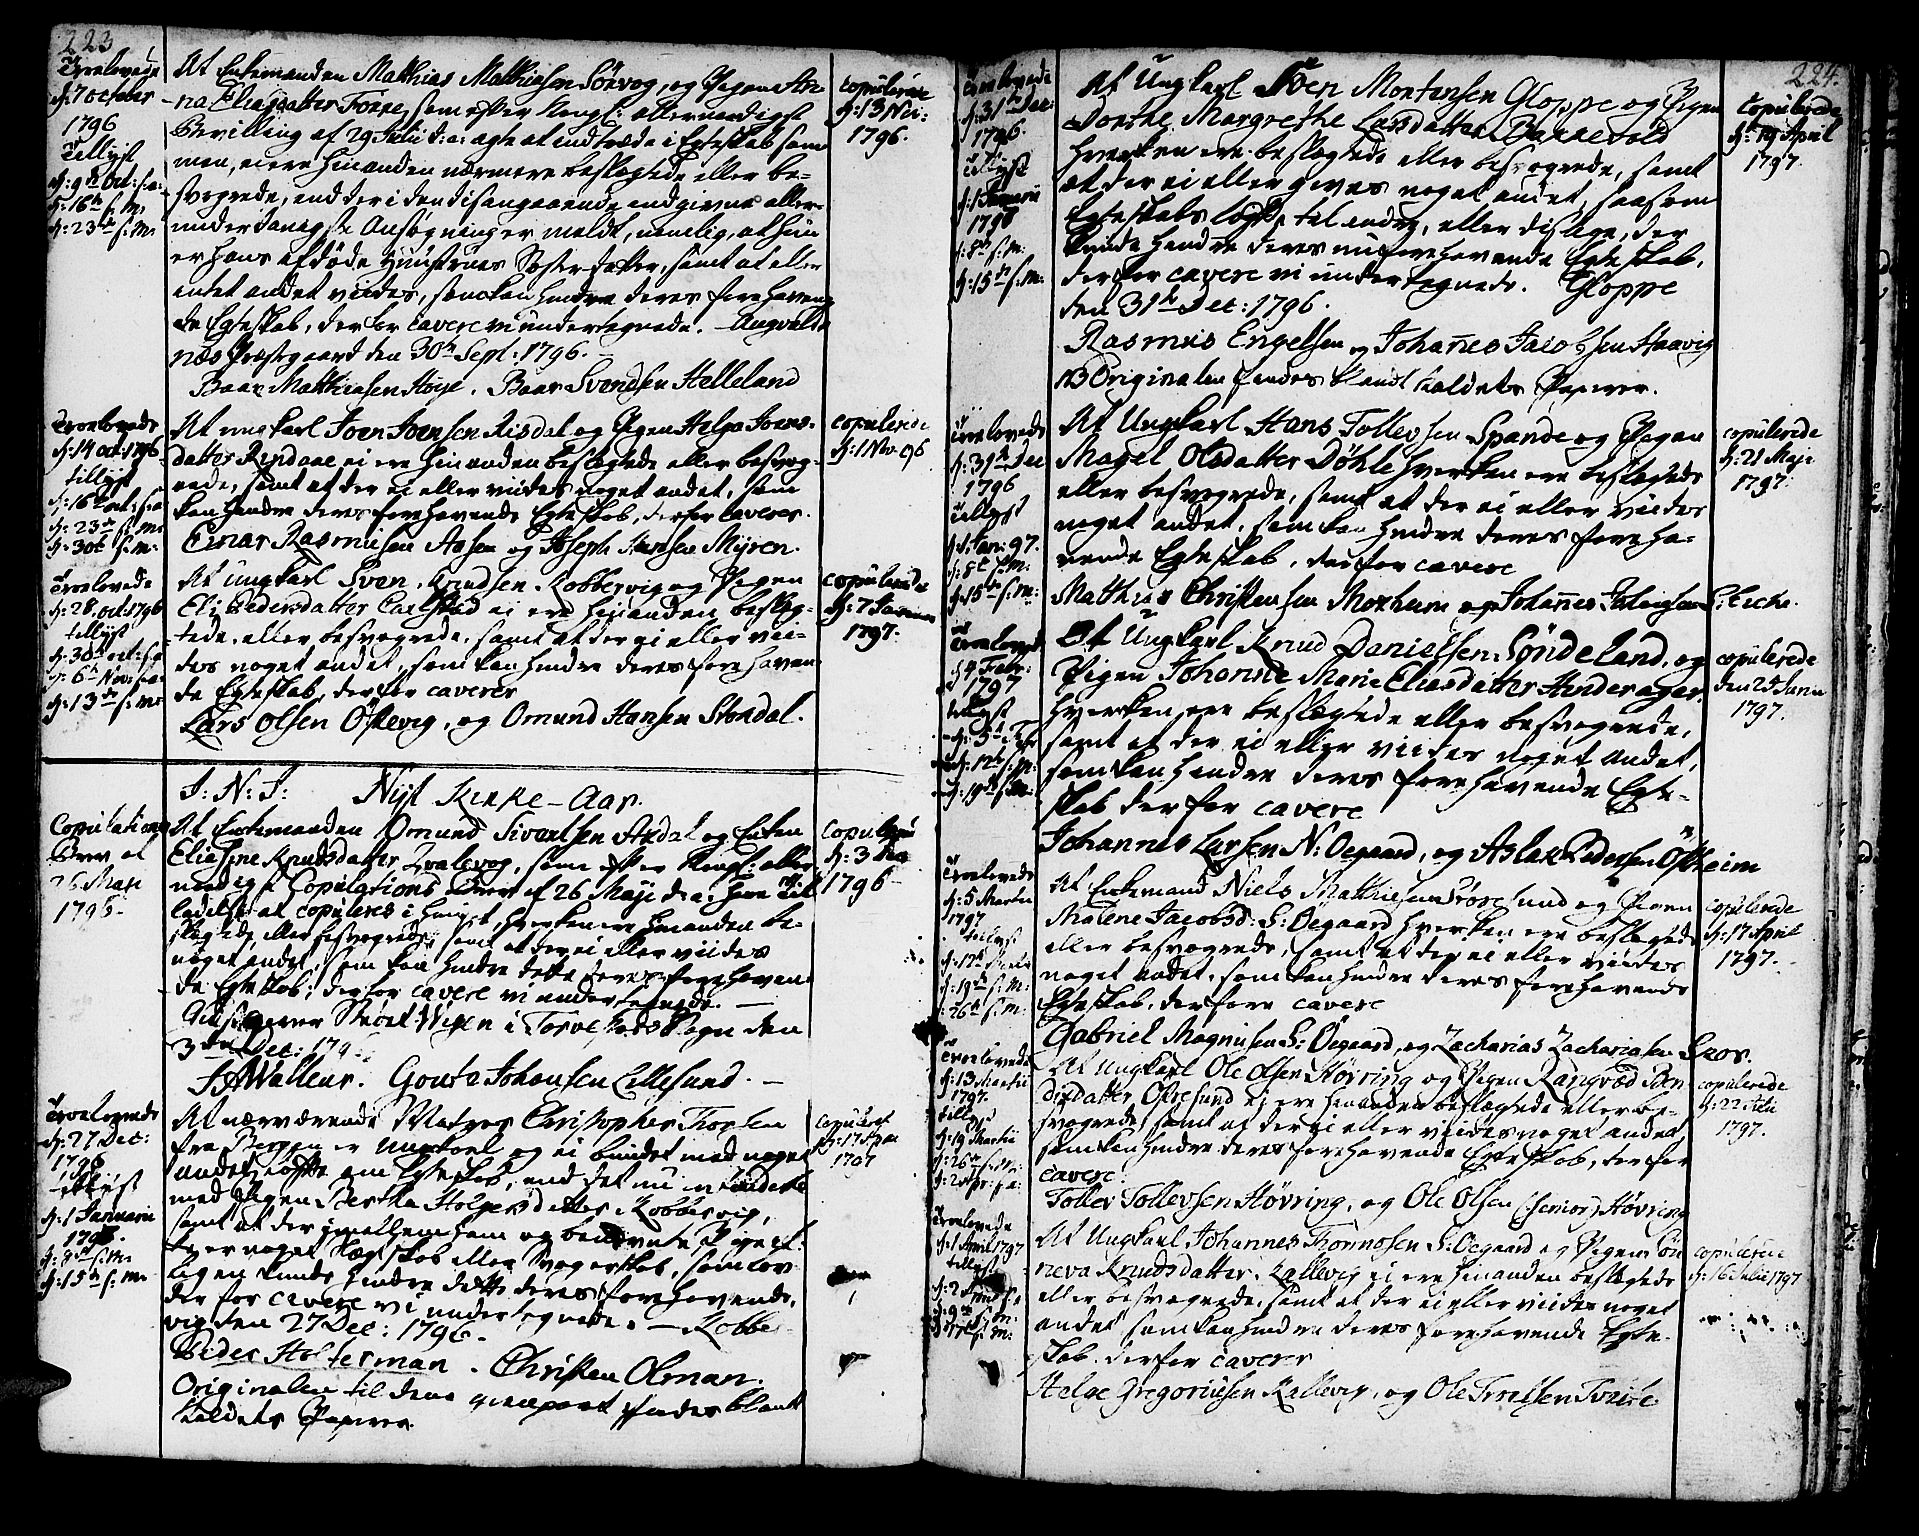 223
Troelovede
d: 7 October
1796
Tillyst
d: 9de Oct: s:a:
d: 16de s. M.
d: 23de s. M.
At Enkemanden Mathias Mathiasen Sörvog, og Pigen An-
na Eliasdatter Tonne, som efter Kongl: allernaadigst
Bevilling af 29 Julii d: a: agte at indtræde i Egteskab sam-
men, ei ere hinanden nærmere beslægtede eller be-
svogrede, end der i den disangaaende indgivne aller-
underdanigste Ansøgning er meldt, nemlig, at hun
er hans afdöde Hustrues Söster-datter, samt at eller
intet andet viides, som kan hindre deres forehaven-
de Egteskab, derfor cavere vi undertegnede. Augvalds-
næs Præstegaard den 30te Sept: 1796.
Baar Mathiasen Høye. Baar Svendsen Helleland
copulerede
d: 13 Nov:
1796.
Troelovede
d: 14 oct: 1796
tillyst
d: 16de oct: s:a:
d: 23de s. M:
d: 30t s. m.
At ungkarl Joen Joensen Risdal og Pigen Helga Joens-
datter Rendaae ei ere hinanden beslægtede eller besvog-
rede, samt at der ei eller viides noget andet, som
kan hindre deres forehavende Egteskab, derfor caverer
Einar Rasmusen Aasen og Joseph Hansen Myren.
copulerede
d: 1 Nov. 96
Troelovede
d: 28. oct 1796
tillyst
d: 30te oct: s:a:
d: 6te Nov: s:a:
d: 13de s: m:
At Ungkarl Sven Knudsen Kobbervig og Pigen
Eli Pedersdatter Carlstad ei ere hinanden beslæg-
tede eller besvogrede, samt at der ei eller vii-
des noget andet, som kan hindre deres forehaven-
de Egteskab, derfor caverer
Lars Olsen Östevig, og Omund Hansen Stondal.
copulerede
d: 7 Januar
1797.
J: N: J: Nyt Kirke-Aar.
Copulations
Brev af
26 Maji
1796.
At Enkemanden Omund Sivertsen Axdal og Enken
Eliasine Knudsdatter Qvalevog, som efter Kongl: aller
naadigst Copulations Brev af 26 Maji d: a: have Til-
ladelse at copuleres i Huuset, hverken ere hinanden be-
slægtede eller besvogrede, samt at der ei eller viides
noget andet, som kan hindre dette deres forehaven-
de Egteskab; derfor cavere vi undertegnede.
i Torvestads Sogn den
3die Dec: 179
J A Walleur. Goute Johansen Lillesund.
copulered
d: 3 Dec
1796
Troelovede
d: 27 Dec:
1796
tillyst
d: 1 Januarii
1796.
d: 8de s. M:
d: 15de s. M:
At nærværende Matros Christopher Thorsen
fra Bergen er Ungkarl og ei bundet med noget
andet Løfte om Egteskab, end det nu
med Pigen Bertha Holgersdatter Kobbervig,
samt at der imellem ham og bemeldte Pige ei
er noget Slægtskab eller Svogerskab, som lov-
ligen kunde hindre dette deres forehavende,
derfor cavere vi undertegnede. Kobber-
vig den 27 Dec: 1796.
Peder Holterman. Christen Olman.
Originalen til denne findes blant
Kaldets Papirer.
copuleret
d: 17
1797
224.
Troelovede
d: 31te Dec:
1796.
tillyst
d: 1 Januarii
1798
d: 8de s. m.
d: 15de s. M:
At Ungkarl Sven Mortensen Gloppe og Pigen
Dorthe Margrethe Larsdatter
hverken ere beslægtede eller besvogrede, samt
at der ei eller gives noget andet, saasom
Egteskabs løfte til andre, eller dislige, der
kunde hindre deres nu forehavende Egteskab,
derfor cavere vi undertegnede. Gloppe
den 31te Dec: 1796.
Rasmus Engelsen og Johanes Jacobsen Haavig
NB Originalen findes blandt Kaldets Papirer.
Copulerede
d: 19 April
1797.
Troelovede
d: 31te Dec
1796
tillyst
d: 1. Jan: 97.
d: 8t s. M.
d: 15de s. m:
At Ungkarl Hans Tollevsen Spande og Pigen
Magel Olsdatter Döhle hverken ere beslægtede
eller besvogrede, samt at der ei eller viides
noget andet, som kan hindre deres foreha-
vende Egteskab, derfor cavere
Mathias Christensen Moxheim og Johanes
copulerede
d: 21 Maji
1797.
Troelovede
d: 4 Febr:
1797
tillyst
d: 5te Febr
d: 12te s: m:
d: 19de s: M:
At Ungkarl Knud Danielsen Söndeland, og
Pigen Johanne Marie Eliasdatter Hinderager
hverken ere beslægtede eller besvogrede,
samt at der ei eller viides noget andet,
som kan hindre deres forehavende Egte-
skab derfor cavere
Johannes Larsen N: Oegaard, og Aslak Pedersen Östheim
copulerede
den 25 Junii
1797.
Troelovede
d: 5 Martii
1797
tillyst
d: 12te
d: 19de s. m.
d: 26de s. M.
At Enkemand Niels Mathiesen Sörsund og Pigen
Malene Jacobsd: S: Oegaard hverken ere beslægtede
eller besvogrede, samt at der ei eller viides
noget andet, som kan hindre deres forehavende
Egteskab, derfore cavere
Gabriel Magnusen S: Oegaard, og Zacharias Zachariasen
copulerede
d: 17 April
1797.
Troelovede
d: 13 Martii
1797.
tillyst
d: 19 Martii
d: 26de s. M:
d: 2 Apr: s:a:
At Ungkarl Ole Olsen Hövring og Pigen Rangved Ben-
disdatter Östresund ei ere hinanden beslægtede eller be-
svogrede, samt at der ei eller viides noget andet
som kan hindre deres forehavende Egteskab, derfor
cavere.
Tollev Tollevsen Hövring, og Ole Olsen (senior) Hövring
copulerede
d: 22 Julii
1797.
Troelovede
d: 1 April 1797
tillyst
d: 2 April s:a
d: 9de s. M:
s. M:
At Ungkarl Johannes Thormosen S: Oegaard og Pigen Sön-
neva Knudsdatter Kallevig ei ere hinanden beslægtede
eller besvogrede, samt at der ei eller viides noget
andet som kan hindre deres forehavende Egte-
skab, derfor caverer
Helge Gregoriusen Kallevig, og Ole
copulerede
d: 16 Julii 1797